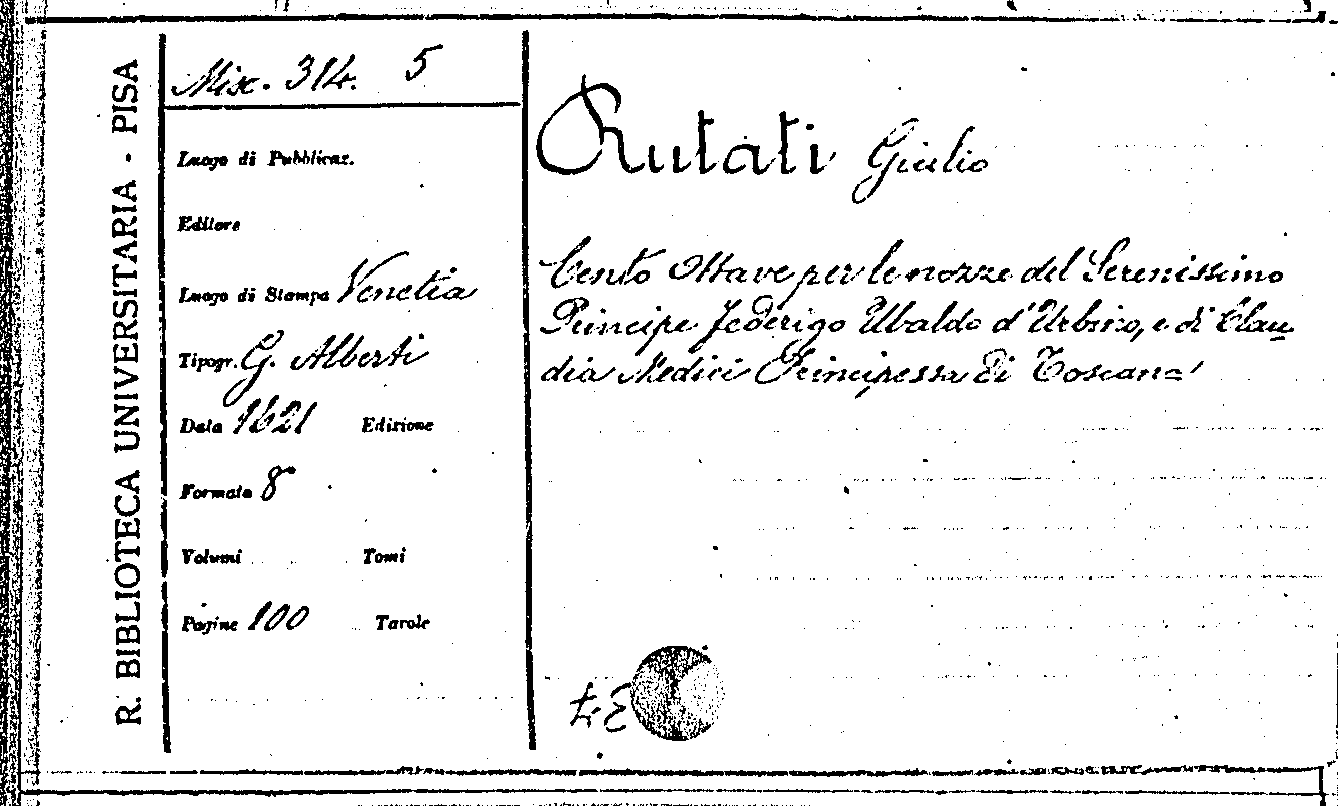 R. BIBLIOTECA UNIVERSITARIA - PISA
Misc. 314. 5
Luogo di Pubblicaz.
Editore
Luogo di Stampa Venetia
Tipogr. G. Alberti
Data 1621 Edizione
Formato 8°
Volumi Tomi
Pagine 100 Tavole
Rutati Giulio
Cento Ottave per le nozze del Serenissimo
Principe Federigo Ubaldo d'Urbino, e di Clau
dia Medici Principessa di Toscana